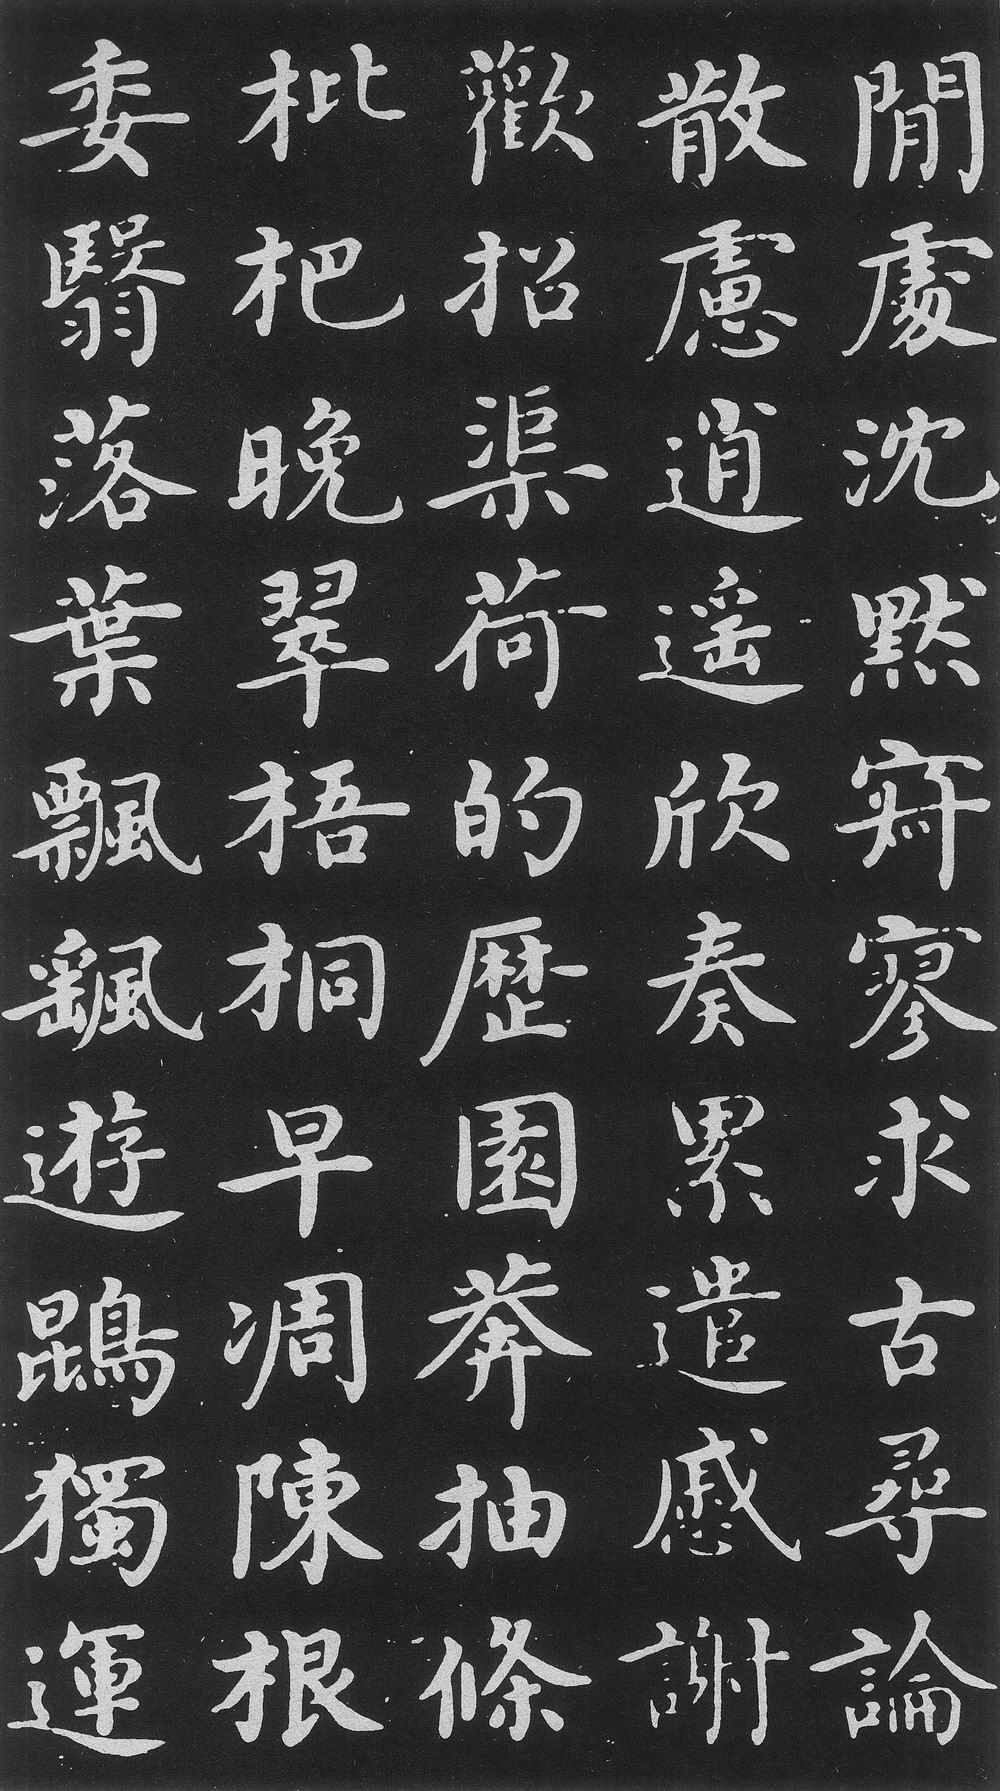 閒處沈默寂寥求古尋論
散慮逍遙欣奏累遣慼謝
歡招渠荷的歷園莽抽條
枇杷晚翠梧桐早凋陳根
委翳落葉飄颻遊鵾獨運